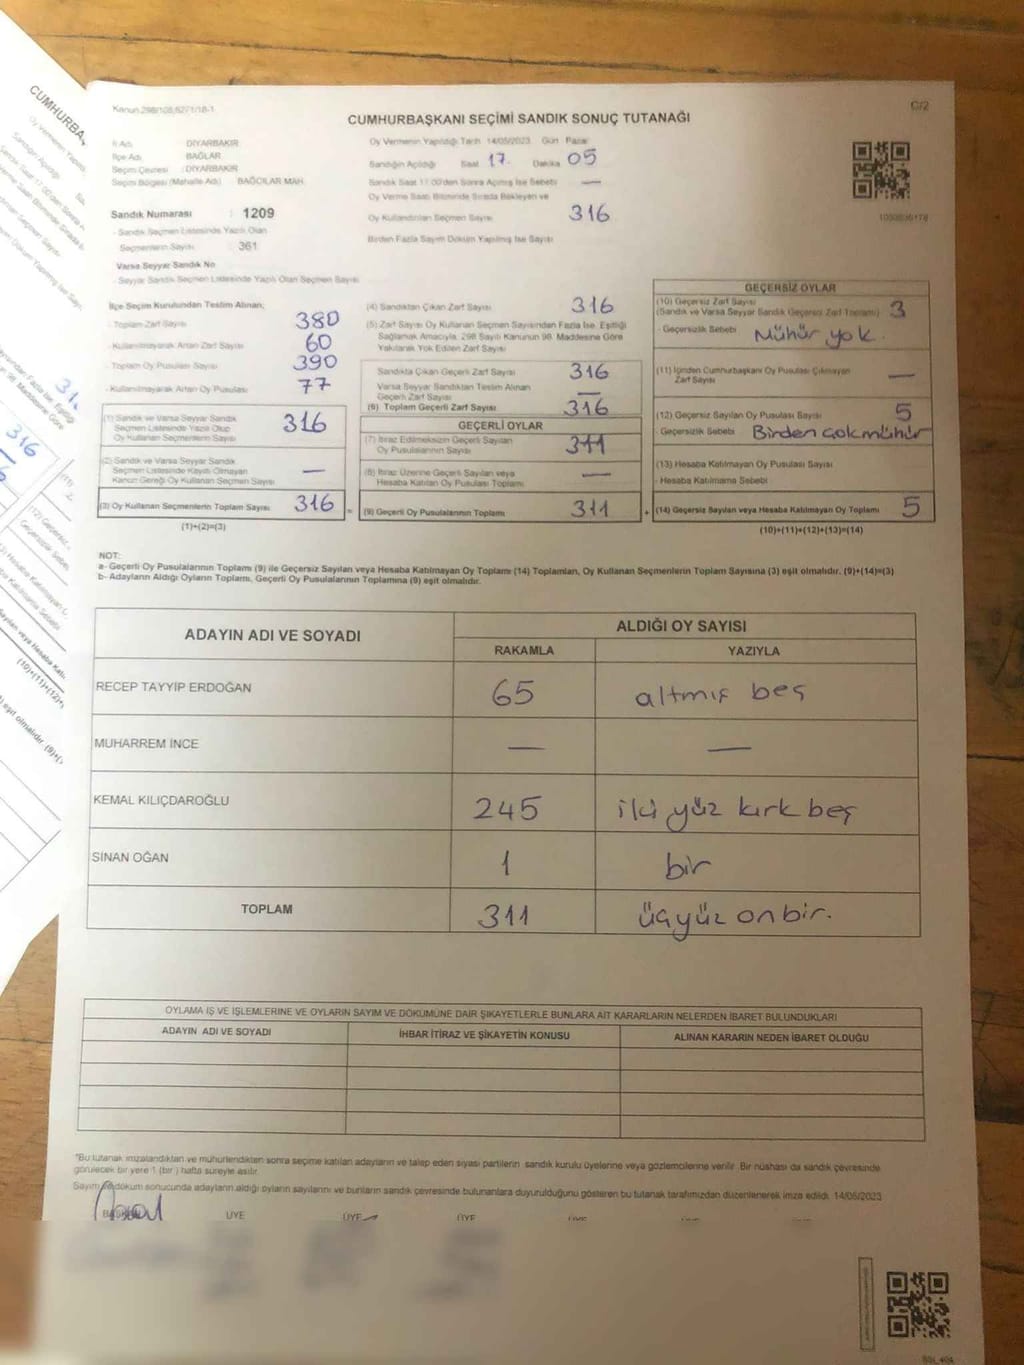 Kanun 298/105,6271/18-1
C/2
CUMHURBAŞKANI SEÇİMİ SANDIK SONUÇ TUTANAĞI
İl Adı DİYARBAKIR
İlçe Adı BAĞLAR
Seçim Çevresi : DİYARBAKIR
Seçim Bölgesi (Mahalle Adı) BAĞCILAR MAH.
Sandık Numarası : 1209
- Sandık Seçmen Listesinde Yazılı Olan
Seçmenlerin Sayısı : 361
Varsa Seyyar Sandık No
- Seyyar Sandık Seçmen Listesinde Yazılı Olan Seçmen Sayısı
Oy Vermenin Yapıldığı Tarih 14/05/2023 Gün Pazar
Sandığın Açıldığı Saat 17. Dakika 05
Sandık Saat 17:00'den Sonra Açılmış İse Sebebi —
Oy Verme Saati Bitiminde Sırada Bekleyen ve
Oy Kullandırılan Seçmen Sayısı 316
Birden Fazla Sayım Döküm Yapılmış İse Sayısı
İlçe Seçim Kurulundan Teslim Alınan;
- Toplam Zarf Sayısı 380
- Kullanılmayarak Artan Zarf Sayısı 60
- Toplam Oy Pusulası Sayısı 390
- Kullanılmayarak Artan Oy Pusulası 77
(1) Sandık ve Varsa Seyyar Sandık
Seçmen Listesinde Yazılı Olup
Oy Kullanan Seçmenlerin Sayısı 316
(2) Sandık ve Varsa Seyyar Sandık
Seçmen Listesinde Kayıtlı Olmayan
Kanun Gereği Oy Kullanan Seçmen Sayısı —
(3) Oy Kullanan Seçmenlerin Toplam Sayısı 316 =
(1)+(2)=(3)
(4) Sandıktan Çıkan Zarf Sayısı 316
(5) Zarf Sayısı Oy Kullanan Seçmen Sayısından Fazla İse, Eşitliği
Sağlamak Amacıyla, 298 Sayılı Kanunun 98. Maddesine Göre
Yakılarak Yok Edilen Zarf Sayısı
Sandıkta Çıkan Geçerli Zarf Sayısı 316
Varsa Seyyar Sandıktan Teslim Alınan
Geçerli Zarf Sayısı —
(6) Toplam Geçerli Zarf Sayısı 316
GEÇERLİ OYLAR
(7) İtiraz Edilmeksizin Geçerli Sayılan
Oy Pusulalarının Sayısı 311
(8) İtiraz Üzerine Geçerli Sayılan veya
Hesaba Katılan Oy Pusulası Toplamı —
(9) Geçerli Oy Pusulalarının Toplamı 311 +
GEÇERSİZ OYLAR
(10) Geçersiz Zarf Sayısı
(Sandık ve Varsa Seyyar Sandık Geçersiz Zarf Toplamı) 3
- Geçersizlik Sebebi Mühür yok.
(11) İçinden Cumhurbaşkanı Oy Pusulası Çıkmayan
Zarf Sayısı —
(12) Geçersiz Sayılan Oy Pusulası Sayısı 5
- Geçersizlik Sebebi Birden çok mühür
(13) Hesaba Katılmayan Oy Pusulası Sayısı
- Hesaba Katılmama Sebebi
(14) Geçersiz Sayılan veya Hesaba Katılmayan Oy Toplamı 5
(10)+(11)+(12)+(13)=(14)
NOT:
a- Geçerli Oy Pusulalarının Toplamı (9) ile Geçersiz Sayılan veya Hesaba Katılmayan Oy Toplamı (14) Toplamları, Oy Kullanan Seçmenlerin Toplam Sayısına (3) eşit olmalıdır. (9)+(14)=(3)
b- Adayların Aldığı Oyların Toplamı, Geçerli Oy Pusulalarının Toplamına (9) eşit olmalıdır.
ADAYIN ADI VE SOYADI
ALDIĞI OY SAYISI
RAKAMLA YAZIYLA
RECEP TAYYİP ERDOĞAN 65 altmış beş
MUHARREM İNCE — —
KEMAL KILIÇDAROĞLU 245 iki yüz kırk beş
SİNAN OĞAN 1 bir
TOPLAM 311 üçyüz onbir.
OYLAMA İŞ VE İŞLEMLERİNE VE OYLARIN SAYIM VE DÖKÜMÜNE DAİR ŞİKAYETLERLE BUNLARA AİT KARARLARIN NELERDEN İBARET BULUNDUKLARI
ADAYIN ADI VE SOYADI İHBAR İTİRAZ VE ŞİKAYETİN KONUSU ALINAN KARARIN NEDEN İBARET OLDUĞU
"Bu tutanak imzalandıktan ve mühürlendikten sonra seçime katılan adayların ve talep eden siyasi partilerin sandık kurulu üyelerine veya gözlemcilerine verilir. Bir nüshası da sandık çevresinde
görülecek bir yere 1 (bir ) hafta süreyle asılır.
Sayım ve döküm sonucunda adayların aldığı oyların sayılarını ve bunların sandık çevresinde bulunanlara duyurulduğunu gösteren bu tutanak tarafımızdan düzenlenerek imza edildi. 14/05/2023
BAŞKAN ÜYE ÜYE ÜYE